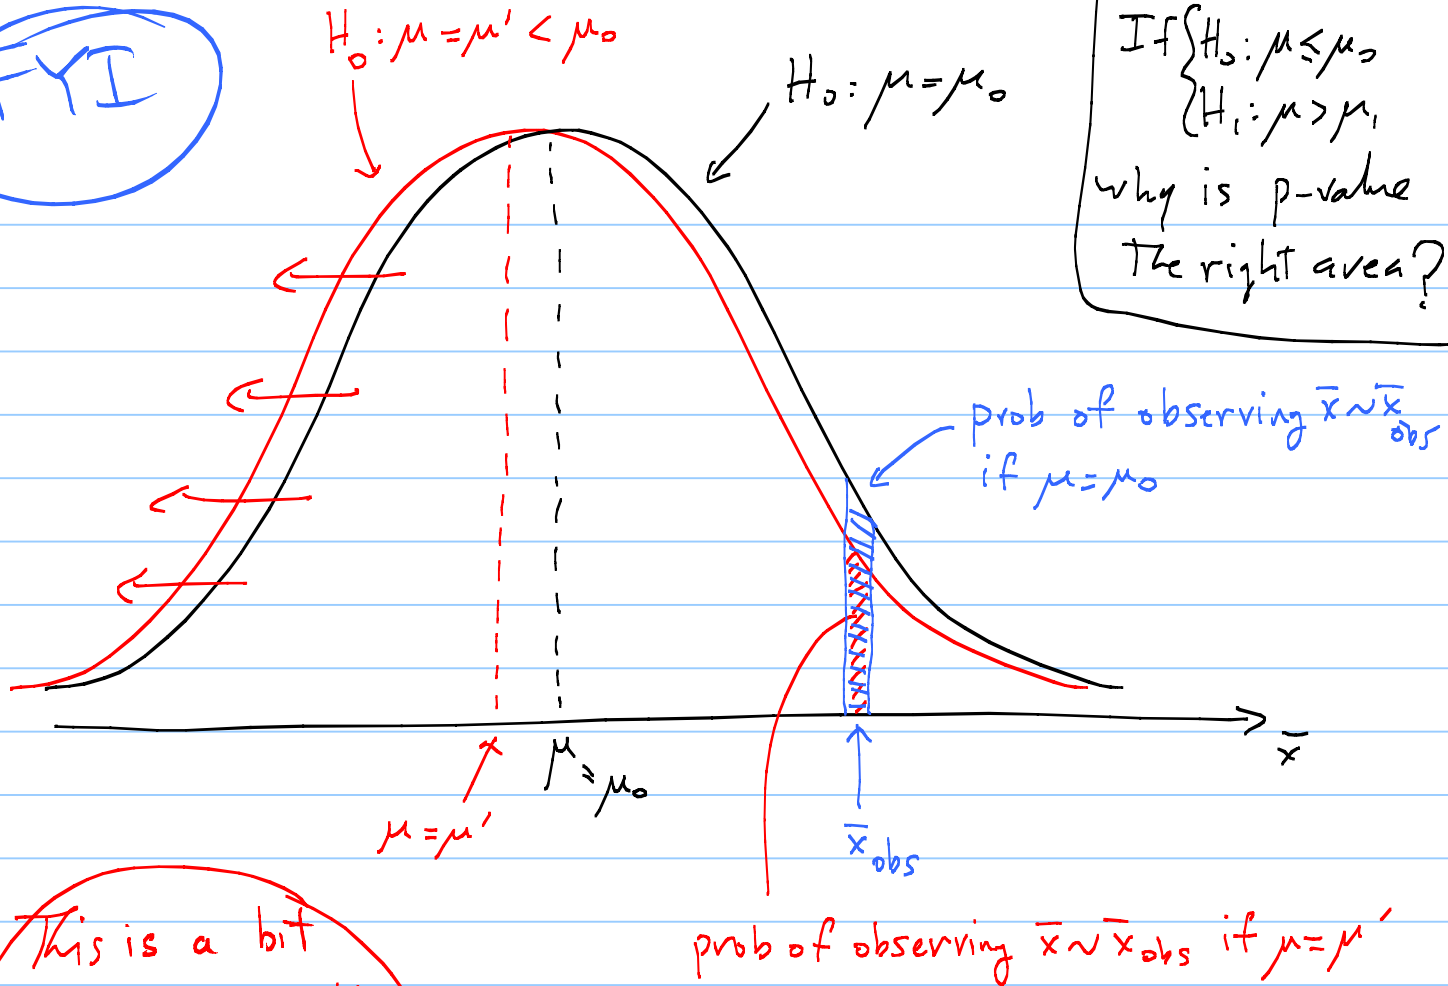 FYI
H₀: μ = μ' < μ₀
H₀: μ = μ₀
If { H₀: μ ≤ μ₀
H₁: μ > μ₁
why is p-value
the right area?
prob of observing x̄ ~ x̄obs
if μ = μ₀
x̄
μ = μ₀
μ = μ'
x̄obs
This is a bit
prob of observing x̄ ~ x̄obs if μ = μ'